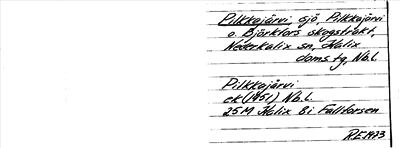 Pilkkojärvi, sjö, Pilkkojärvi
o. Björkfors skogstrakt,
Nederkalix sn, Kalix
doms tg, Nb.l.
Pilkkojärvi
ek (1951) Nb.l.
25M Kalix 8i Fallforsen
RE1973